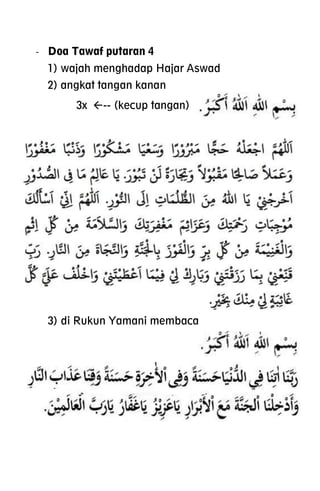 - Doa Tawaf putaran 4
1) wajah menghadap Hajar Aswad
2) angkat tangan kanan
3x <-- (kecup tangan) بِسْمِ اللهِ اَللهُ أَكْبَرُ.
اَللّٰهُمَّ اجْعَلْهُ حَجًّا مَبْرُوْرًا وَسَعْيًا مَشْكُوْرًا وَذَنْبًا مَغْفُوْرًا
وَعَمَلًا صَالِحًا مَقْبُوْلًا وَتِجَارَةً لَنْ تَبُوْرَ. يَا عَالِمُ مَا فِى الصُّدُوْرِ
اَخْرِجْنِيْ يَا اللهُ مِنَ الظُّلُمَاتِ اِلَى النُّوْرِ. اَللّٰهُمَّ اِنِّيْ اَسْأَلُكَ
مُوْجِبَاتِ رَحْمَتِكَ وَعَزَائِمَ مَغْفِرَتِكَ وَالسَّلَامَةَ مِنْ كُلِّ اِثْمٍ
وَالْغَنِيْمَةَ مِنْ كُلِّ بِرٍّ وَالْفَوْزَ بِالْجَنَّةِ وَالنَّجَاةَ مِنَ النَّارِ. رَبِّ
قَنِّعْنِيْ بِمَا رَزَقْتَنِيْ وَبَارِكْ لِيْ فِيْمَا اَعْطَيْتَنِيْ وَاخْلُفْ عَلَيَّ كُلَّ
غَائِبَةٍ لِيْ مِنْكَ بِخَيْرٍ.
3) di Rukun Yamani membaca
بِسْمِ اللهِ اَللهُ أَكْبَرُ.
رَبَّنَا اٰتِنَا فِي الدُّنْيَا حَسَنَةً وَفِى اْلأٰخِرَةِ حَسَنَةً وَقِنَا عَذَابَ النَّارِ
وَأَدْخِلْنَا اْلجَنَّةَ مَعَ اْلأَبْرَارِ يَاعَزِيْزُ يَاغَفَّارُ يَارَبَّ الْعَالَمِيْنَ.